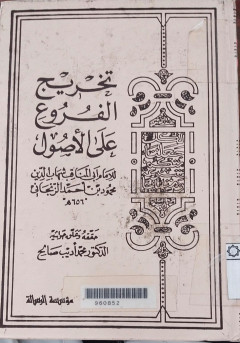 تخريج
الفروع
على الأصول
للإمام أبي المناقب شهاب الدين
محمود بن أحمد الزنجاني
"٦٥٦ هـ"
حققه وعلق عليه
الدكتور محمد أديب صالح
980852
مؤسسة الرسالة